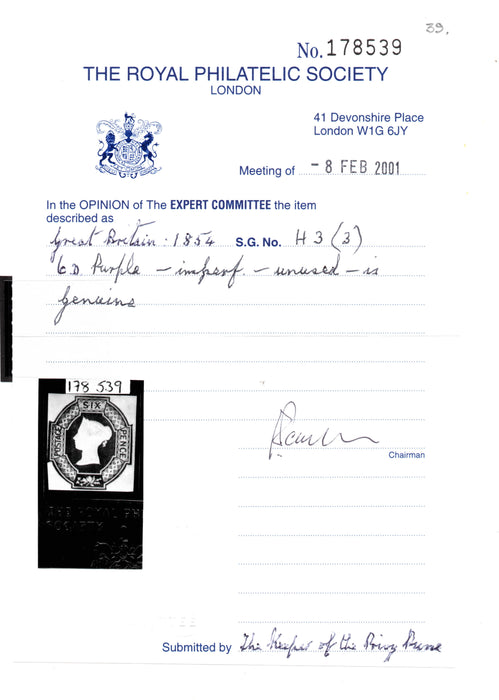 39.
No. 178539
THE ROYAL PHILATELIC SOCIETY
LONDON
41 Devonshire Place
London W1G 6JY
Meeting of - 8 FEB 2001
In the OPINION of The EXPERT COMMITTEE the item
described as
Great Britain : 1854 S.G. No. H3 (3)
6.D. Purple - imperf. - unused - is
genuine
178 539
SIX
POSTAGE
PENCE
THE ROYAL PH
SOCIETY
Chairman
Submitted by The Keeper of the Privy Purse